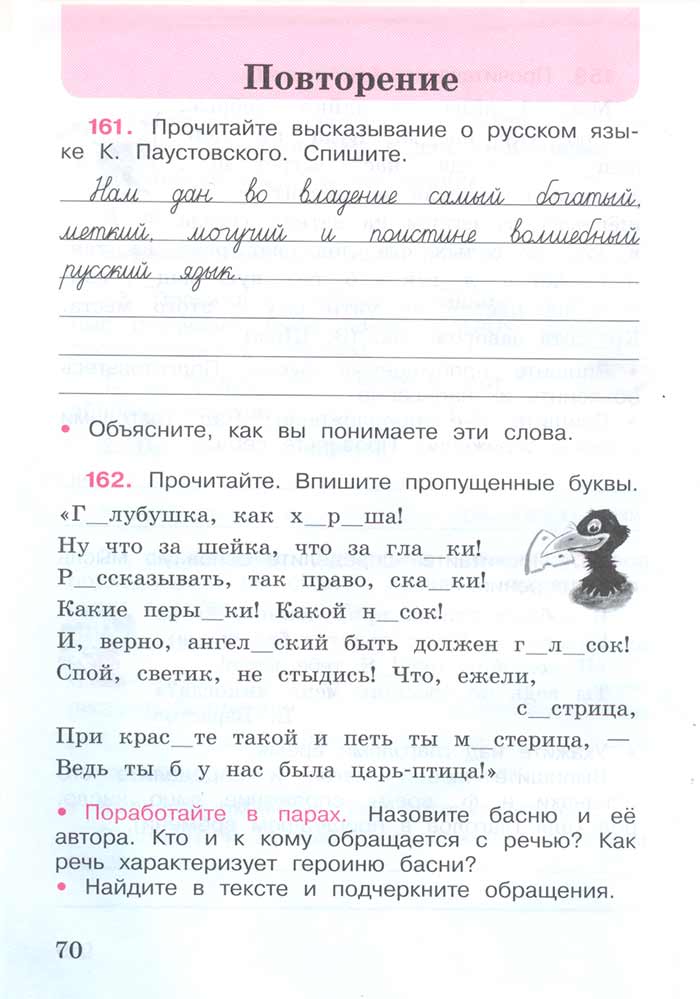 Повторение
161. Прочитайте высказывание о русском язы-
ке К. Паустовского. Спишите.
Нам дан во владение самый богатый,
меткий, могучий и поистине волшебный
русский язык.
• Объясните, как вы понимаете эти слова.
162. Прочитайте. Впишите пропущенные буквы.
«Г__лубушка, как х__р__ша!
Ну что за шейка, что за гла__ки!
Р__ссказывать, так право, ска__ки!
Какие перы__ки! Какой н__сок!
И, верно, ангел__ский быть должен г__л__сок!
Спой, светик, не стыдись! Что, ежели,
с__стрица,
При крас__те такой и петь ты м__стерица, —
Ведь ты б у нас была царь-птица!»
• Поработайте в парах. Назовите басню и её
автора. Кто и к кому обращается с речью? Как
речь характеризует героиню басни?
• Найдите в тексте и подчеркните обращения.
70